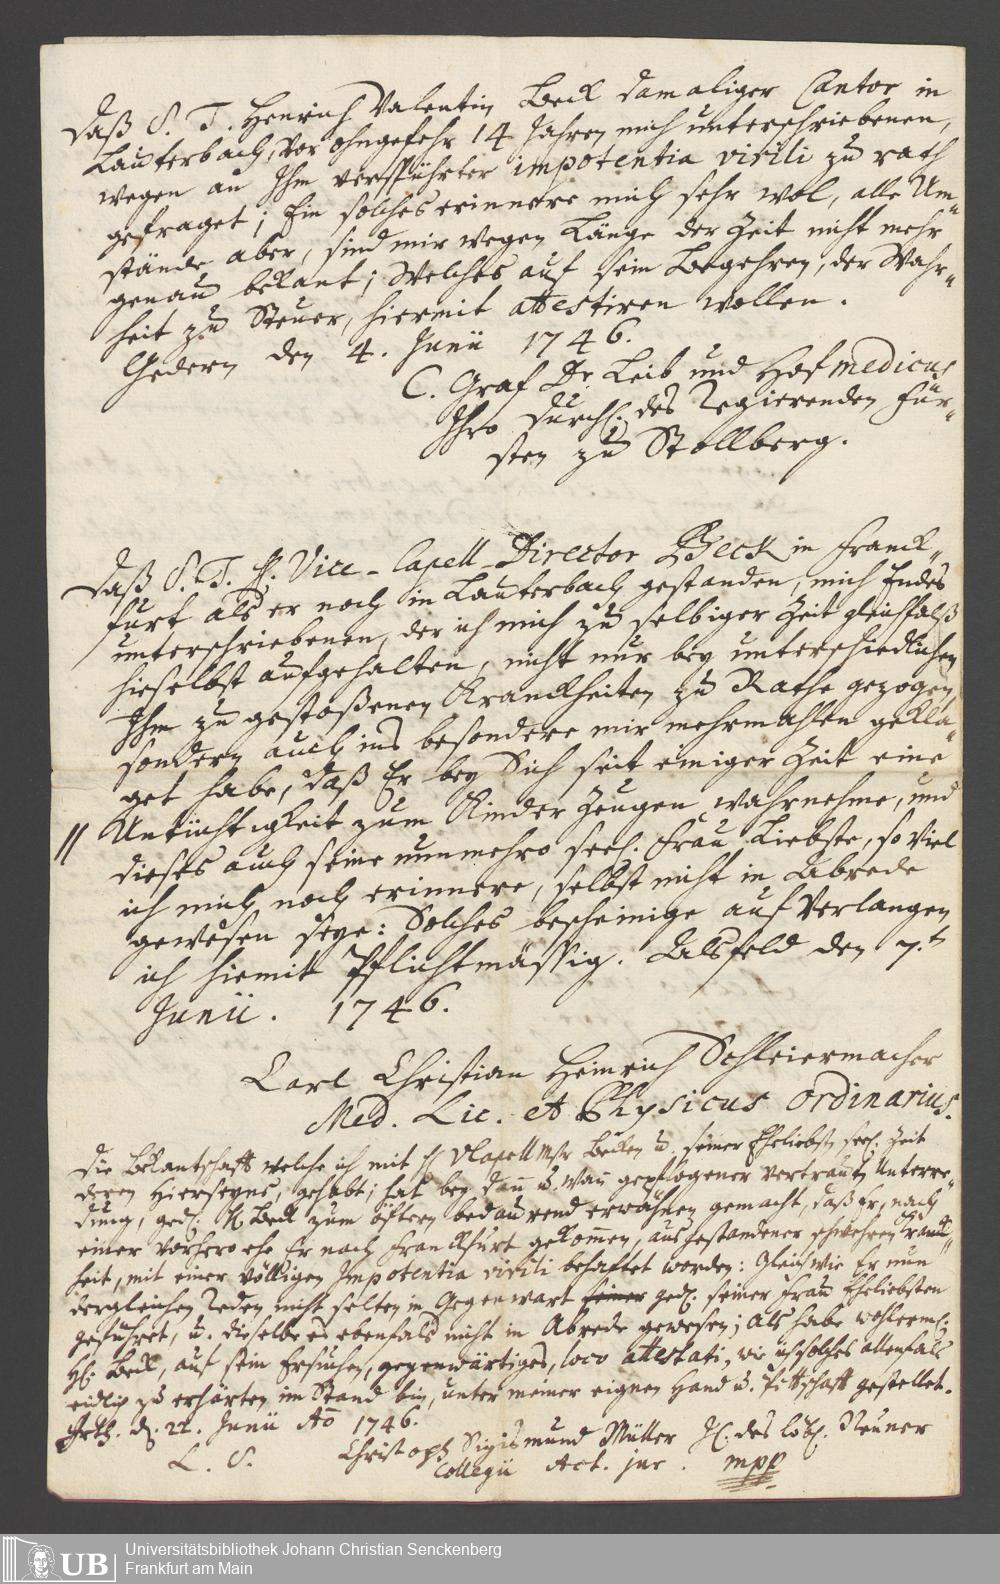 Daß S. T. Henrich Valentin Beck damaliger Cantor in
Lauterbach, vor ohngefehr 14 Jahren mich unterschriebenen,
wegen an Ihm verspührter impotentia virili zu rath
gefraget; Ein solches erinnere mich sehr wol, alle Um-
stände aber, sind mir wegen Länge der Zeit nicht mehr
genau bekant; Welches auf sein Begehren, der Wahr-
heit zu Steuer, hiermit attestiren wollen.
Gedern den 4. Junii 1746.
C. Graf Dr Leib und Hof medicus
Ihro Durchl. des Regierenden Für-
sten zu Stollberg.
Daß S. T. H. Vice-Capell-Director Beck in Franck-
furt als er noch in Lauterbach gestanden, mich Endes
unterschriebenen, der ich mich zu selbiger Zeit gleichfalß
hieselbst aufgehalten, nicht nur bey unterschiedlichen
Ihm zugestoßenen Kranckheiten zu Rathe gezogen,
sondern auch ins besondere mir mehrmahlen gekla-
get habe, daß Er bey Sich seit einiger Zeit eine
Untüchtigkeit zum Kinder Zeugen wahrnehme, und
dieses auch seine nunmehro seel. Frau Liebste, so viel
ich mich noch erinnere, selbst nicht in Abrede
gewesen seye: Solches bescheinige auf Verlangen
ich hiemit Pflichtmässig. Alsfeld den 7.t
Junii. 1746.
Carl Christian Heinrich Schleiermacher
Med. Lic. et Physicus ordinarius.
Die Bekantschafft welche ich mit H. Capell Mstr Becken u. seiner Eheliebsten seel. Zeit
deren Hierseyns, gehabt; hat bey dann u. wann gepflogener vertrauten Unterre-
dung, ged. H. Beck zum öftern bedaurend erwähnen gemacht, daß Er, nach
einer vorhero ehe Er nach Franckfurt gekommen, ausgestandener schwehren Kranck-
heit, mit einer völligen Impotentia virili behaftet worden: Gleichwie Er nun
dergleichen Reden nicht selten in Gegenwart seiner ged. seiner Frau Eheliebsten
geführet, u. dieselbe es ebenfals nicht in Abrede gewesen; Als habe wohlerm.
H. Beck, auf sein Ersuchen, gegenwärtiges, loco attestati, wie ich solches allenfals
eidlich zu erhärten im Stand bin, unter meiner eignen Hand u. Pittschafft gestellet.
d. 22. Junii Ao 1746.
Christoph Sigismund Müller des löbl. Neuner
L. S. Collegii Act. jur. mpp